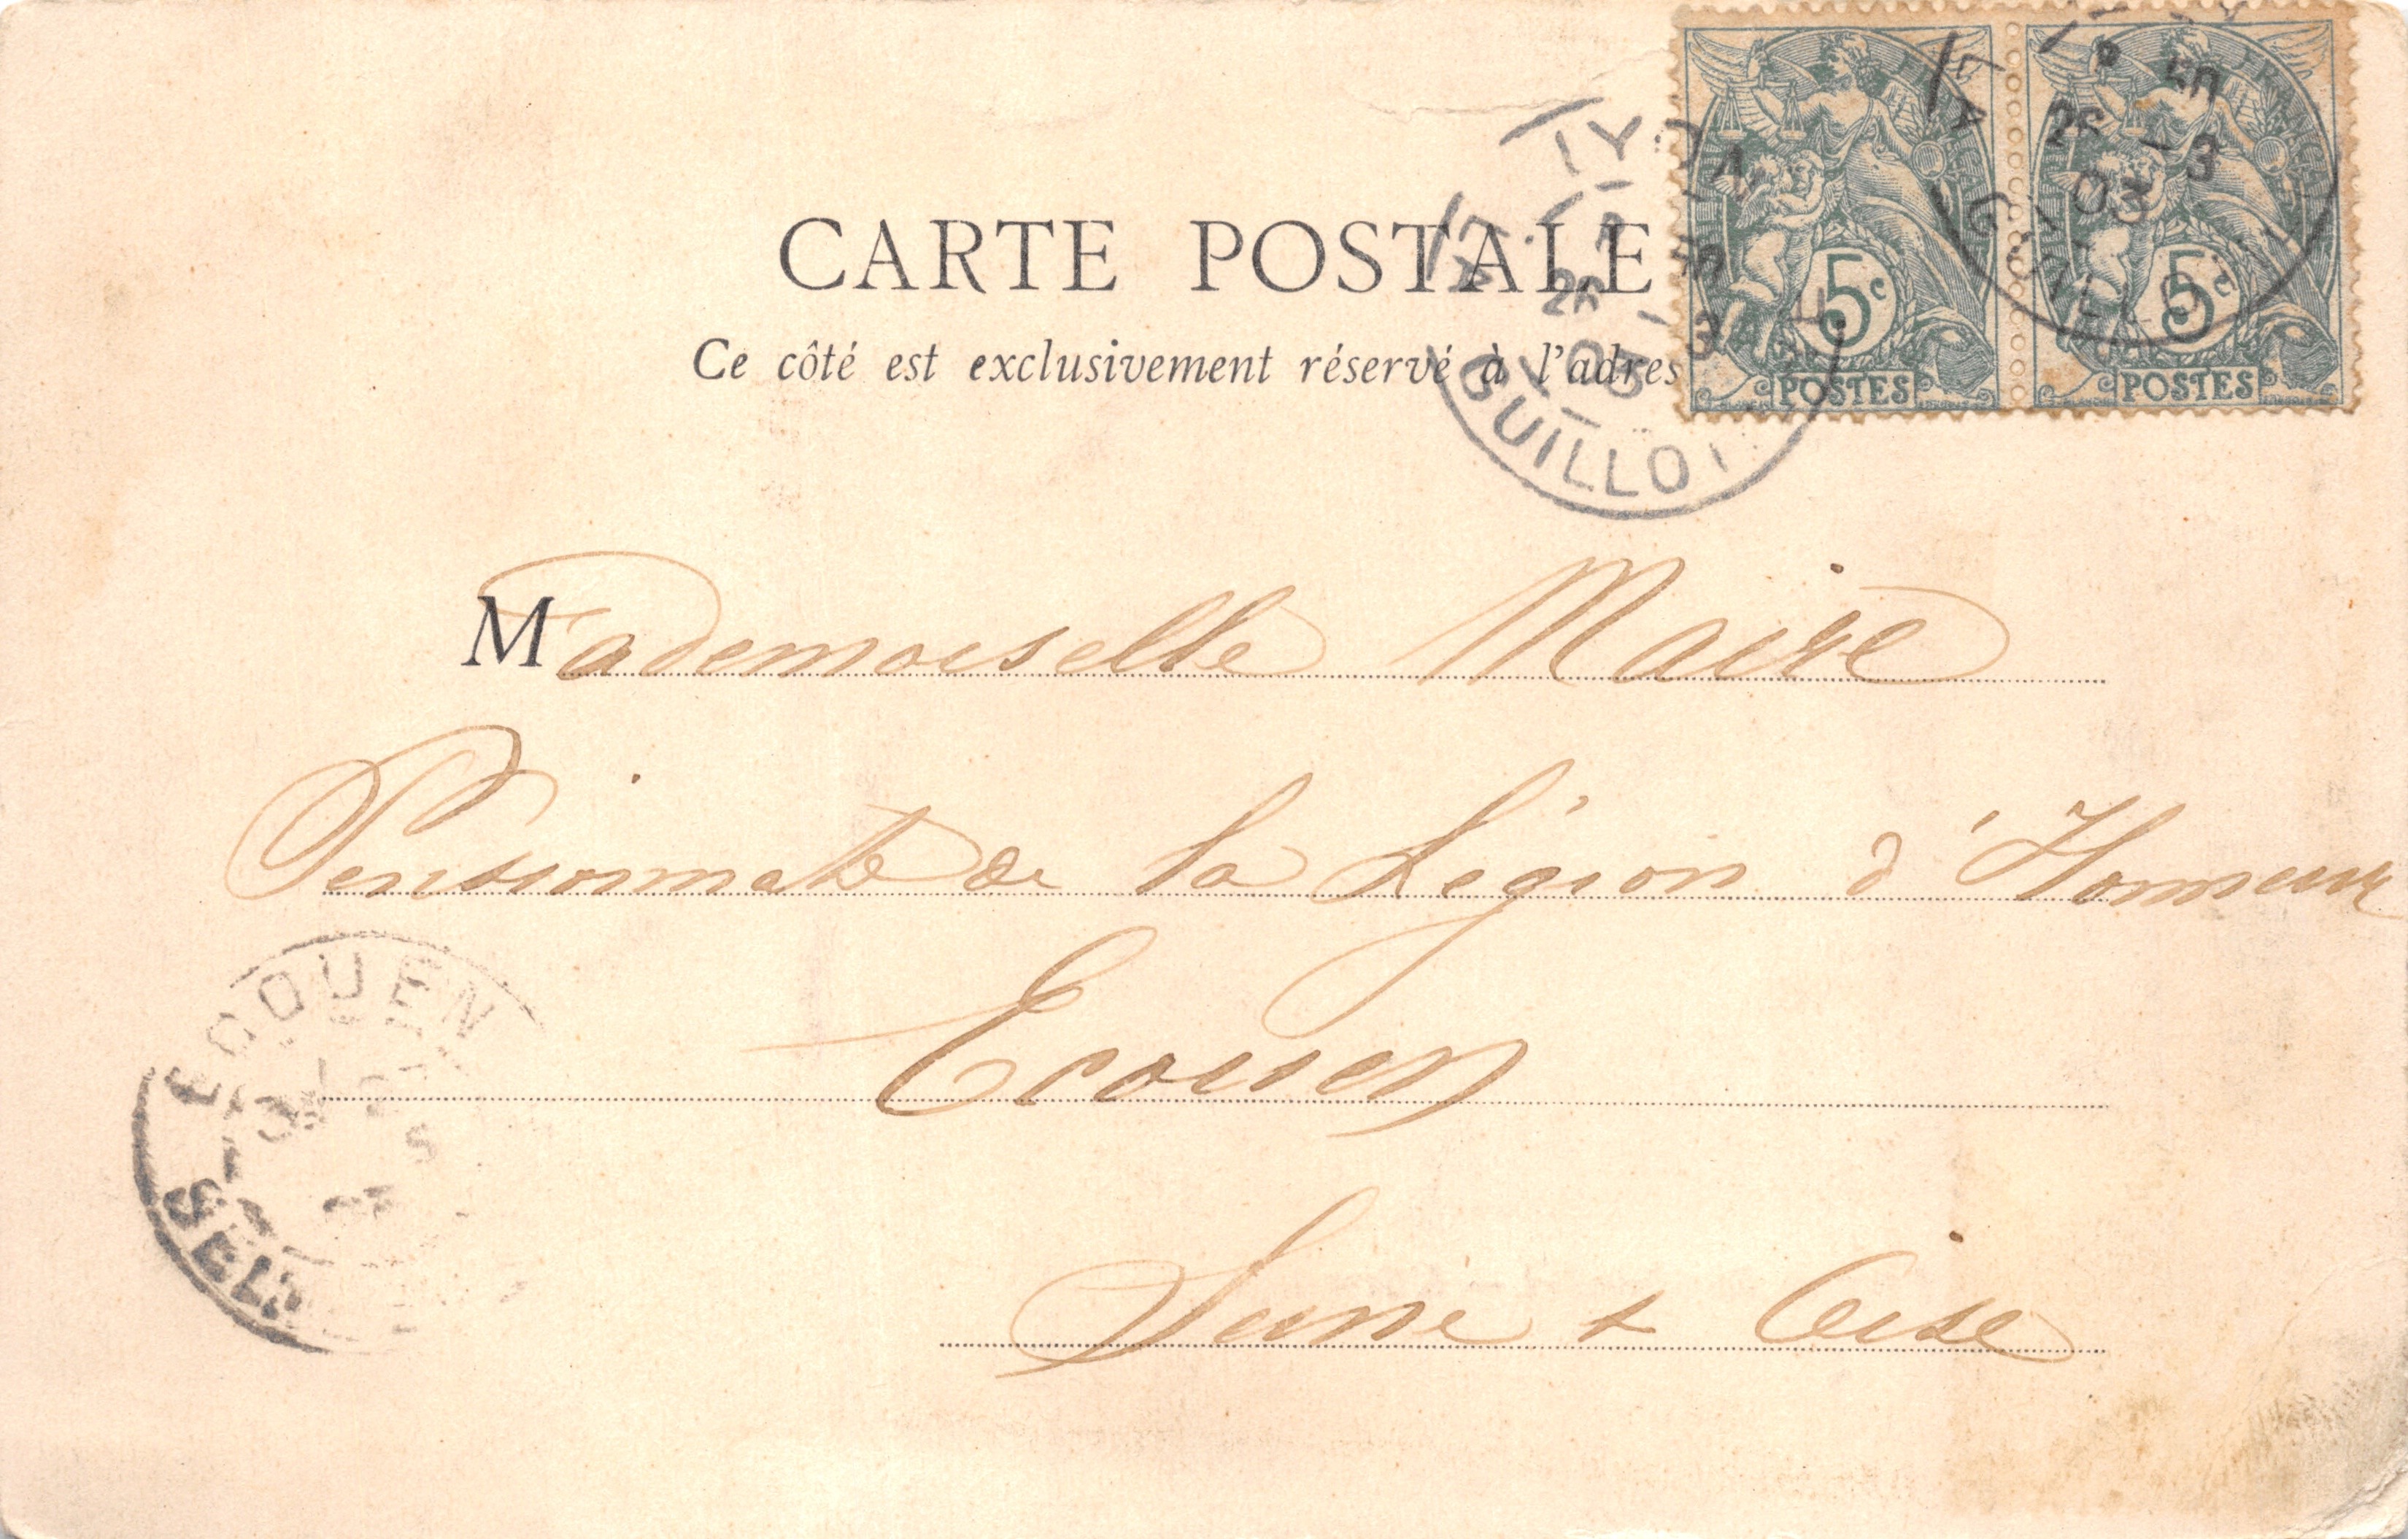 CARTE POSTALE
Ce côté est exclusivement réservé à l'adres
Mademoiselle Maire
Pensionnat de la Légion d'Honneur
Ecouen
Seine & Oise
5c
POSTES
5c
POSTES
GUILLOT
26 -3
03
ECOUEN